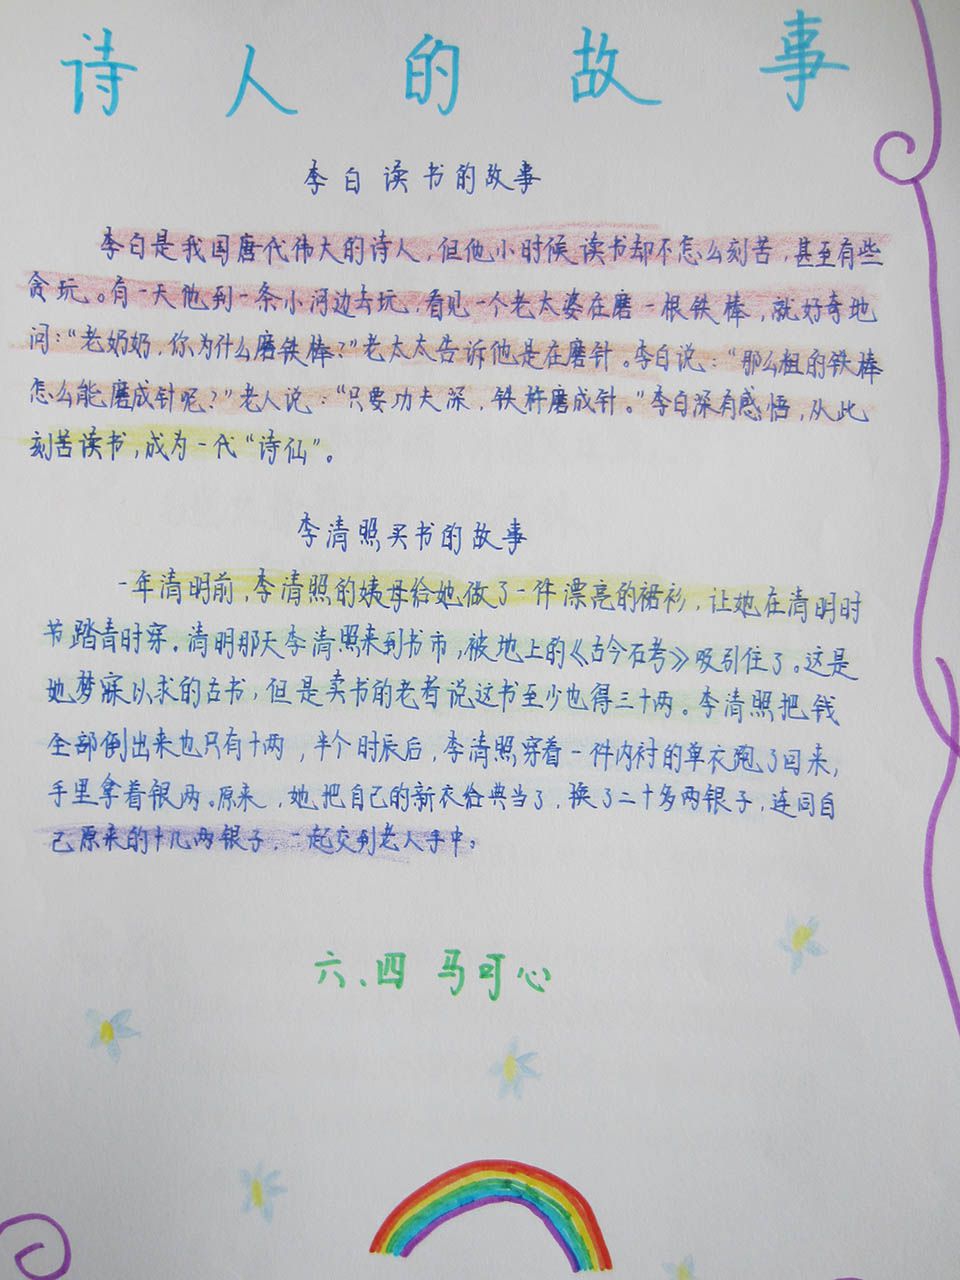 诗人的故事
李白读书的故事
李白是我国唐代伟大的诗人，但他小时候读书却不怎么刻苦，甚至有些
贪玩。有一天他到一条小河边去玩，看见一个老太婆在磨一根铁棒，就好奇地
问：“老奶奶，你为什么磨铁棒？”老太太告诉他是在磨针。李白说：“那么粗的铁棒
怎么能磨成针呢？”老人说：“只要功夫深，铁杵磨成针。”李白深有感悟，从此
刻苦读书，成为一代“诗仙”。
李清照买书的故事
一年清明前，李清照的姨母给她做了一件漂亮的裙衫，让她在清明时
节踏青时穿。清明那天李清照来到书市，被地上的《古今石考》吸引住了。这是
她梦寐以求的古书，但是卖书的老者说这书至少也得三十两。李清照把钱
全部倒出来也只有十两，半个时辰后，李清照穿着一件内衬的单衣跑了回来，
手里拿着银两。原来，她把自己的新衣给典当了，换了二十多两银子，连同自
己原来的十几两银子，一起交到老人手中。
六、四 马可心